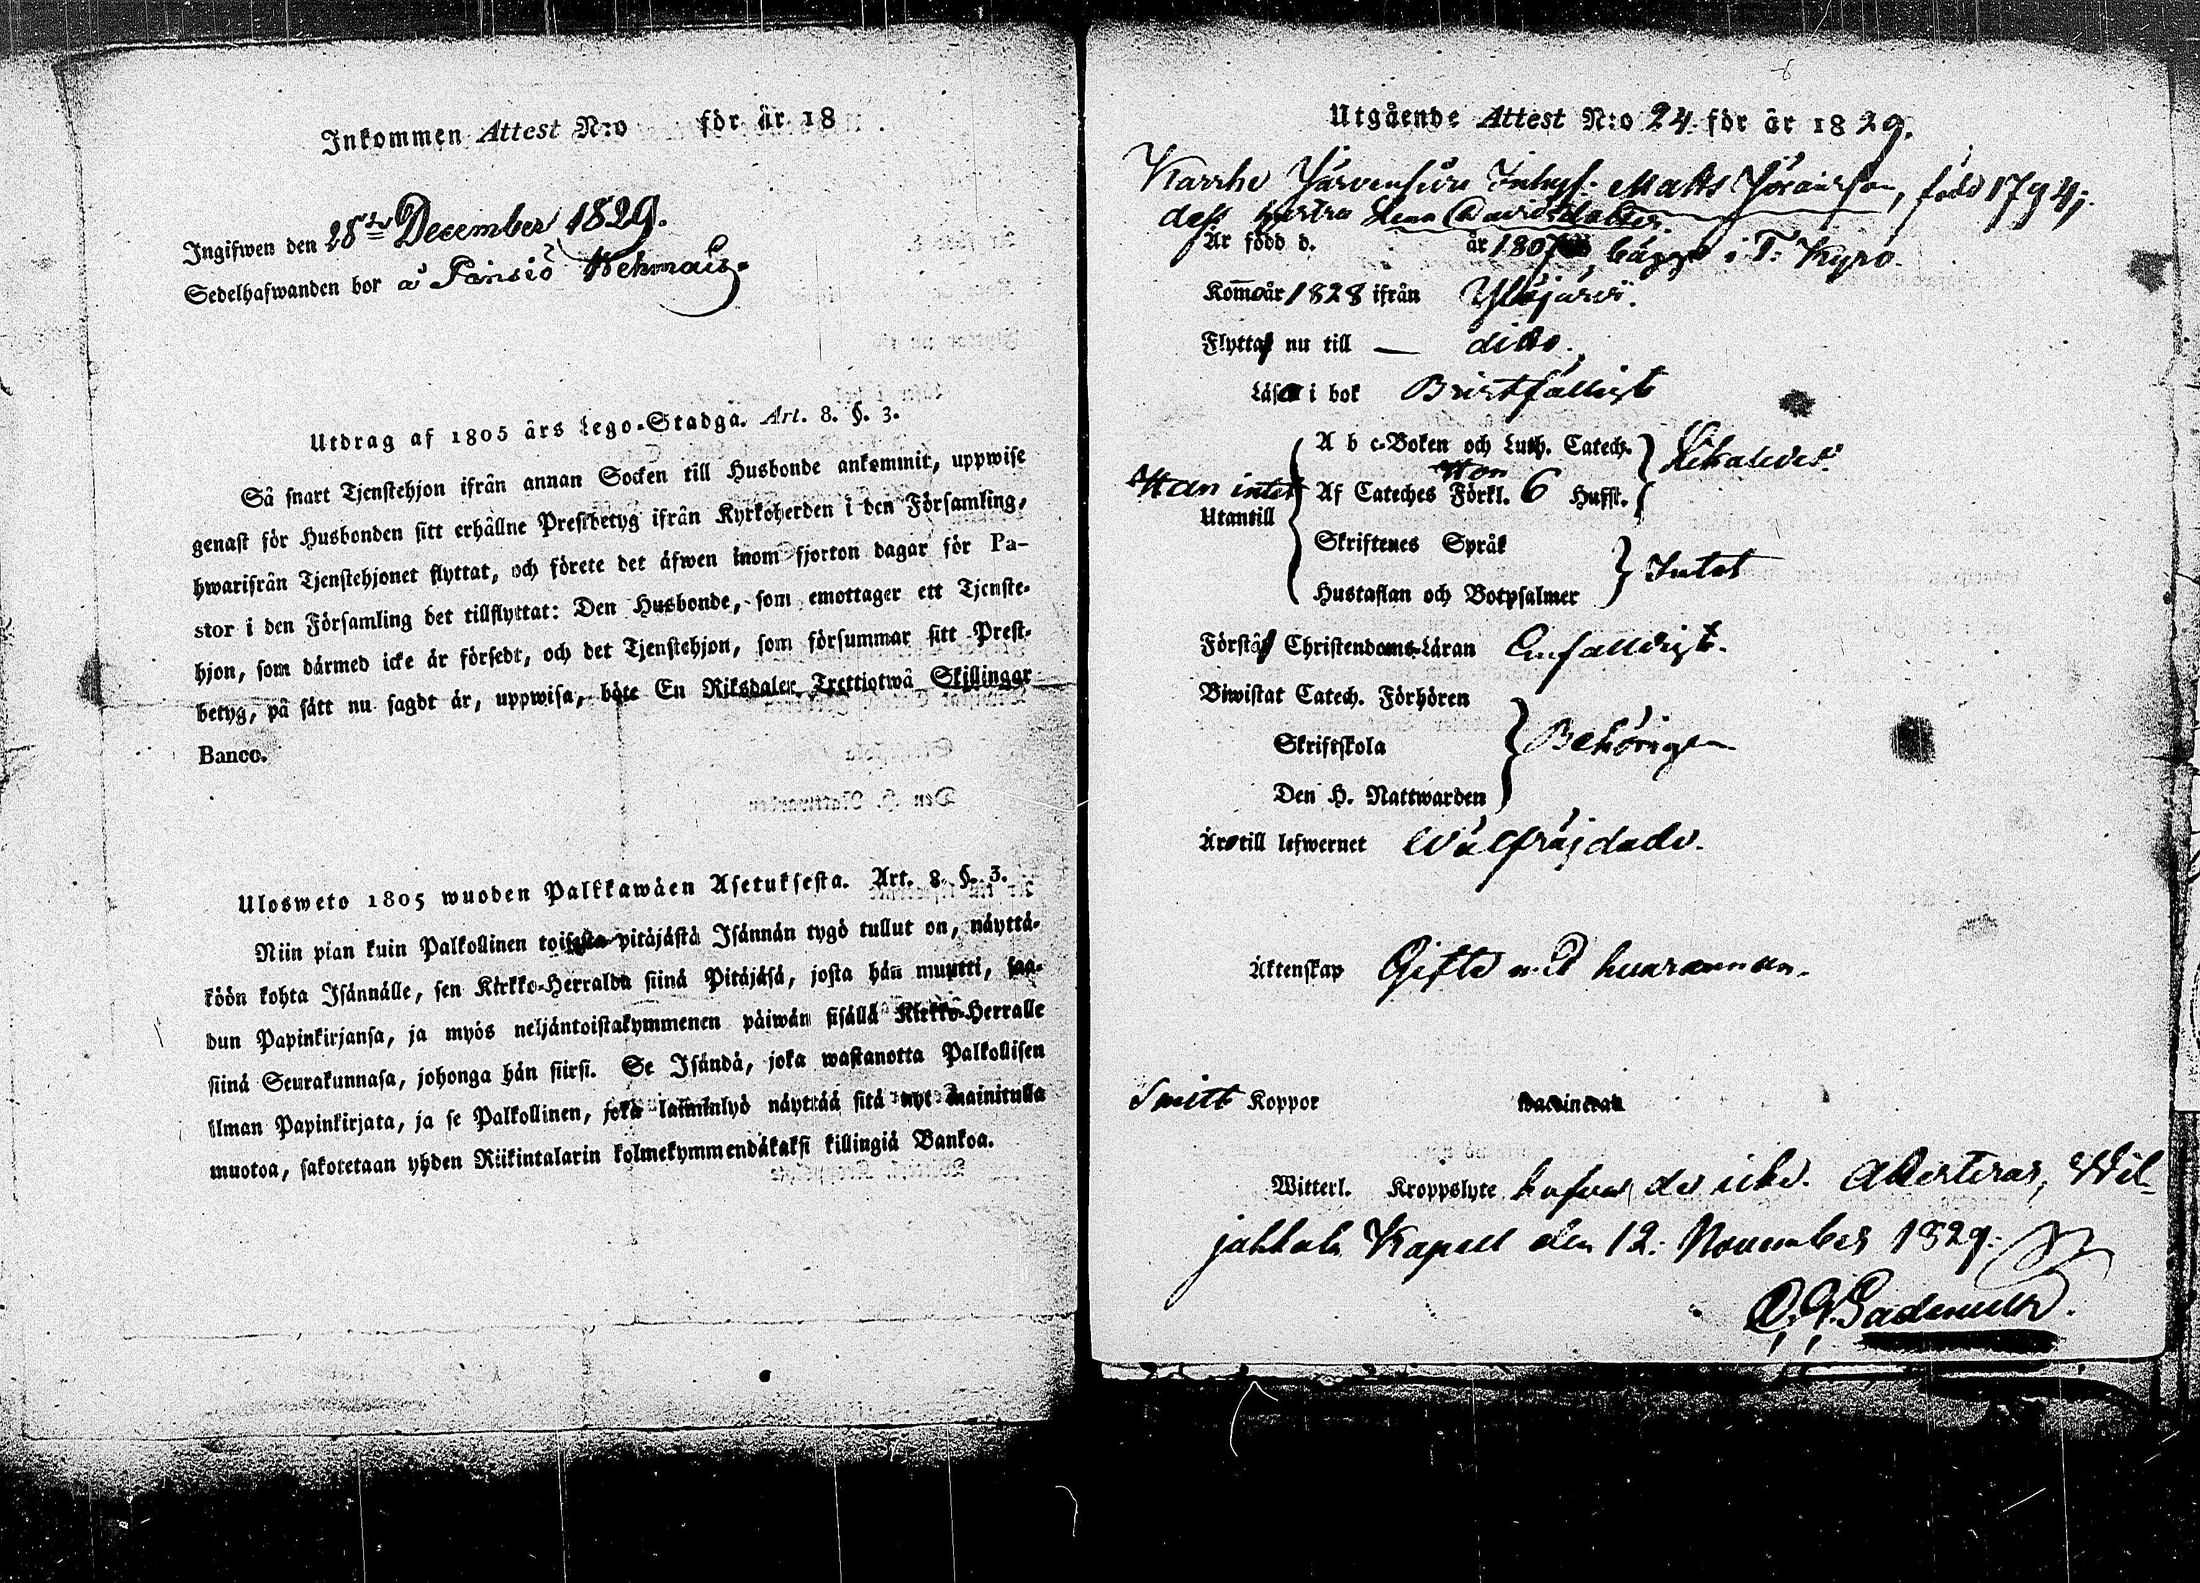 Inkommen Attest N:o för år 18 .
Ingifwen den 28de December 1829.
Sedelhafwanden bor å Pinsiö Wehmais.
Utdrag af 1805 års Lego-Stadga. Art. 8. §. 3.
Så snart Tjenstehjon ifrån annan Socken till Husbonde ankommit, uppwise
genast för Husbonden sitt erhållne Prestbetyg ifrån Kyrkoherden i den Församling,
hwarifrån Tjenstehjonet flyttat, och förete det äfwen inom fjorton dagar för Pa-
stor i den Församling det tillflyttat: Den Husbonde, som emottager ett Tjenste-
hjon, som därmed icke är försedt, och det Tjenstehjon, som försummar sitt Prest-
betyg, på sätt nu sagdt är, uppwisa, böte En Riksdaler Trettiotwå Skillingar
Banco.
Ulosweto 1805 wuoden Palkkawäen Asetuksesta. Art. 8. §. 3.
Niin pian kuin Palkollinen toisesta pitäjästä Isännän tygö tullut on, näyttä-
köön kohta Isännälle, sen Kirkko-Herralda siinä Pitäjäsä, josta hän muutti, saa-
dun Papinkirjansa, ja myös neljäntoistakymmenen päiwän sisällä Kirkko-Herralle
siinä Seurakunnasa, johonga hän siirsi. Se Isändä, joka wastanotta Palkollisen
ilman Papinkirjata, ja se Palkollinen, joka laiminlyö näyttää sitä nyt mainitulla
muotoa, sakotetaan yhden Riikintalarin kolmekymmendäkaksi killingiä Bankoa.
Utgående Attest N:o 24. för år 1829.
Karrhe Järvensivu Inhys. Matts Jöransson, född 1794;
dess hustru Lena Davidsdotter
Är född d. år 1807 bägge i T: Kyro.
Kommo år 1828 ifrån Ylöjärvi.
Flytta nu till — ditto.
Läsa i bok Bristfälligt
A b c-Boken och Luth. Catech. Likaledes.
Han intet Af Cateches Förkl. Hon 6 Hufst.
Utantill
Skriftenes Språk
Intet
Hustaflan och Botpsalmer
Förstå Christendoms-Läran Enfalldigt.
Biwistat Catech. Förhören
Skriftskola Behörigen
Den H. Nattwarden
Äro till lefwernet Wälfräjdade.
Äktenskap Gifte med hwarannan.
Smitt Koppor
Witterl. Kroppslyte hafwa de icke. Attesteras, Wil-
jakkala Kapell den 12. November 1829.